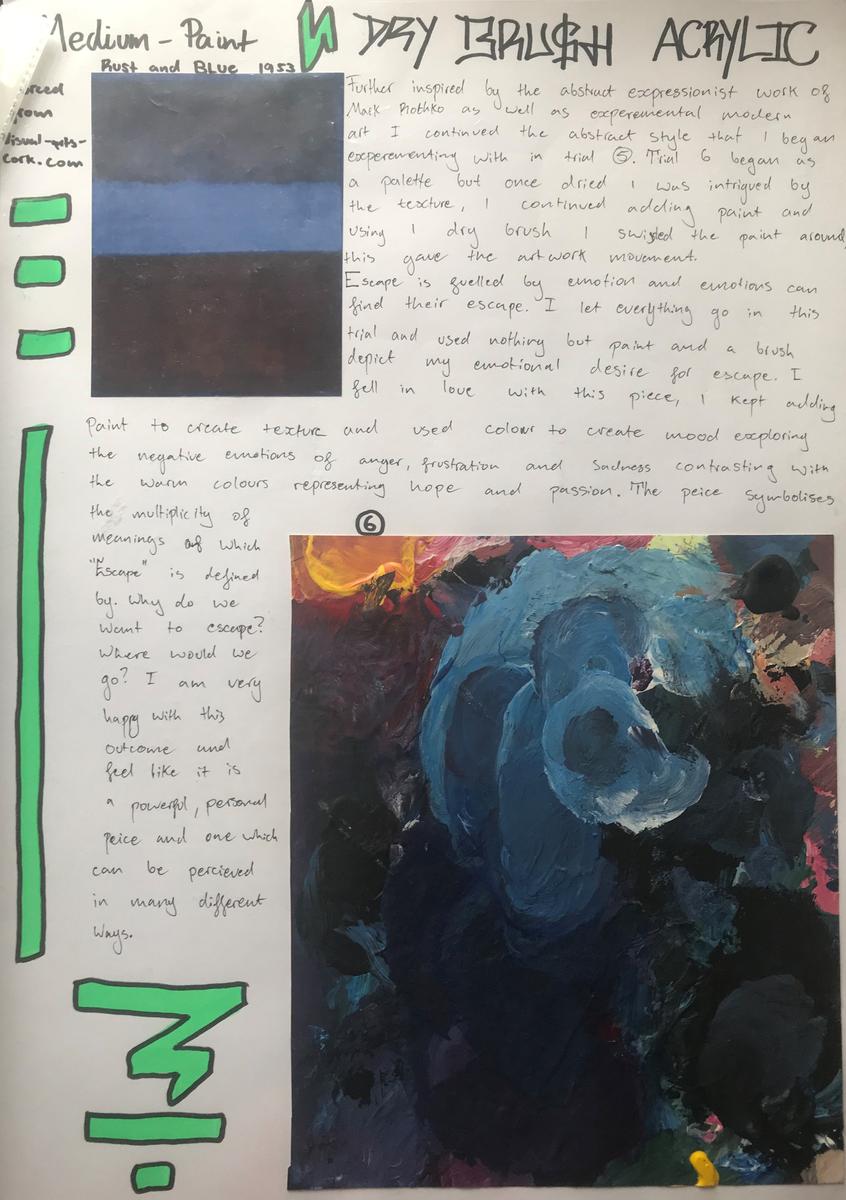 Medium - Paint
DRY BRUSH ACRYLIC
Rust and Blue 1953
Further inspired by the abstract expressionist work of
Mark Rothko as well as experemental modern
art I continued the abstract style that I began
experementing with in trial ⑤. Trial 6 began as
a palette but once dried I was intrigued by
the texture, I continued adding paint and
using 1 dry brush I the paint around,
this gave the artwork movement.
Escape is fuelled by emotion and emotions can
find their escape. I let everything go in this
trial and used nothing but paint and a brush
depict my emotional desire for escape. I
fell in love with this piece, I kept adding
Paint to create texture and used colour to create mood exploring
the negative emotions of anger, frustration and Sadness contrasting with
the warm colours representing hope and passion. The peice symbolises
the multiplicity of
meanings of which
"Escape" is defined
by. Why do we
want to escape?
Where would we
go? I am very
happy with this
outcome and
feel like it is
a powerful, personal
peice and one which
can be percieved
in many different
Ways.
⑥